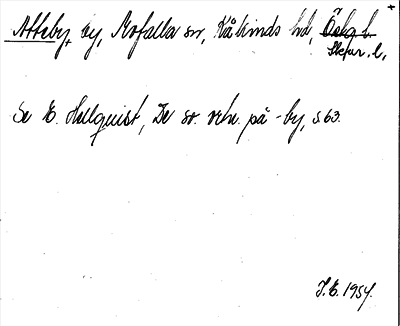 Atteby, by, Mofalla sn, Kåkinds hd, Östg. l.
Skar. l,
Se E. Hellquist, De sv. ortn. på -by, s 63.
J.E. 1954.